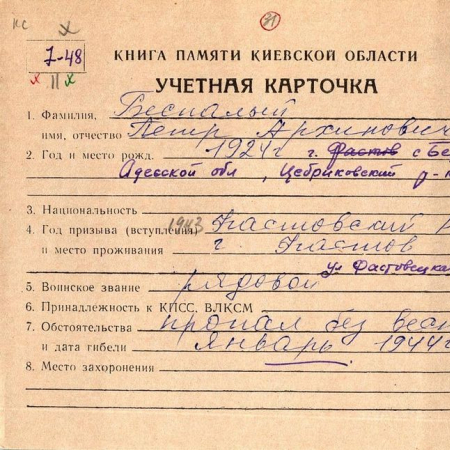 кс х 31
7-48
х || х
КНИГА ПАМЯТИ КИЕВСКОЙ ОБЛАСТИ
УЧЕТНАЯ КАРТОЧКА
1. Фамилия, Беспалый
имя, отчество Петр Архипович
2. Год и место рожд. 1924 г г. Фастов с Бе
Адесской обл, Цебриковский р-н
3. Национальность
4. Год призыва (вступления) 1943 Фастовский
и место проживания г Фастов
ул Фастовецкая
5. Воинское звание рядовой
6. Принадлежность к КПСС, ВЛКСМ
7. Обстоятельства пропал без вест
и дата гибели Январь 1944 г
8. Место захоронения